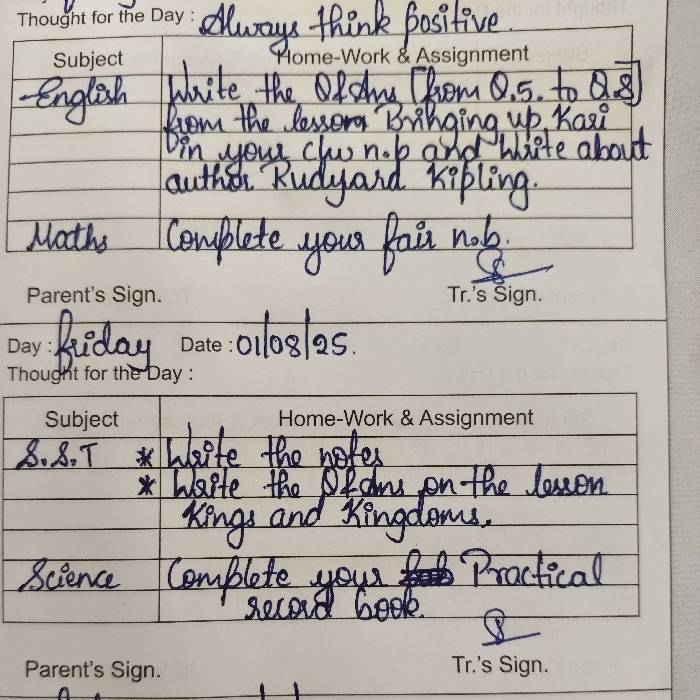 Thought for the Day : Always think positive.
Subject Home-Work & Assignment
English Write the Q&Ans [from Q.5. to Q.8]
from the lesson Bringing up Kari
in your c/w n.b and Write about
author Rudyard Kipling.
Maths Complete your fair n.b.
Parent's Sign. Tr.'s Sign.
Day : friday Date : 01/08/25.
Thought for the Day :
Subject Home-Work & Assignment
S.S.T * Write the notes
* Write the Q&Ans on the lesson
Kings and Kingdoms.
Science Complete your Practical
record book.
Parent's Sign. Tr.'s Sign.